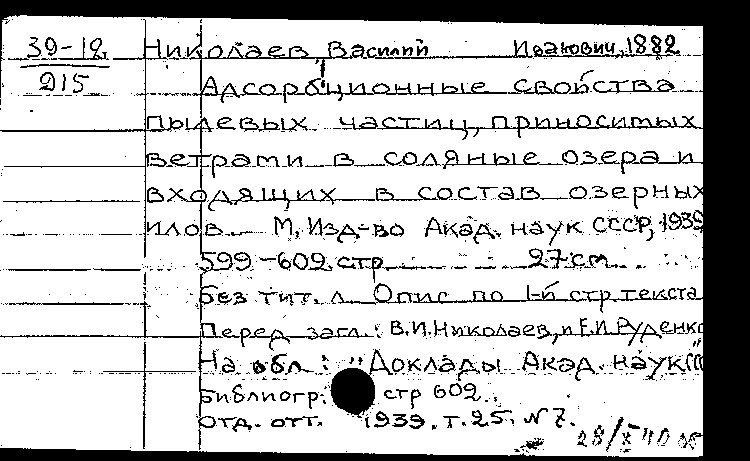 39-12
Д15
Николаев, Василий Иванович, 1882
Адсорбционные свойства
пылевых частиц, приносимых
ветрами в соляные озера и
входящих в состав озерных
илов. М, Изд-во Акад. наук СССР, 1939
599-602 стр. 27 см.
без тит. л. Опис по 1-й стр. текста
Перед загл.: В.И. Николаев, и Е.И. Руденко
На обл.: "Доклады Акад. наук
библиогр: стр 602.
отд. отт. 1939. т. 25. N 7.
28/X 40